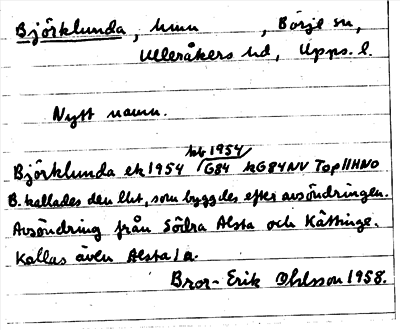 Björklunda, hmn , Börje sn,
Ulleråkers hd, Upps. l.
Nytt namn.
kb 1954
Björklunda ek 1954 G84 kG84NV Top11HNO
B. kallades den lht, som byggdes efter avsöndringen.
Avsöndring från Södra Alsta och Kättinge.
Kallas även Alsta 1a.
Bror-Erik Ohlsson 1958.